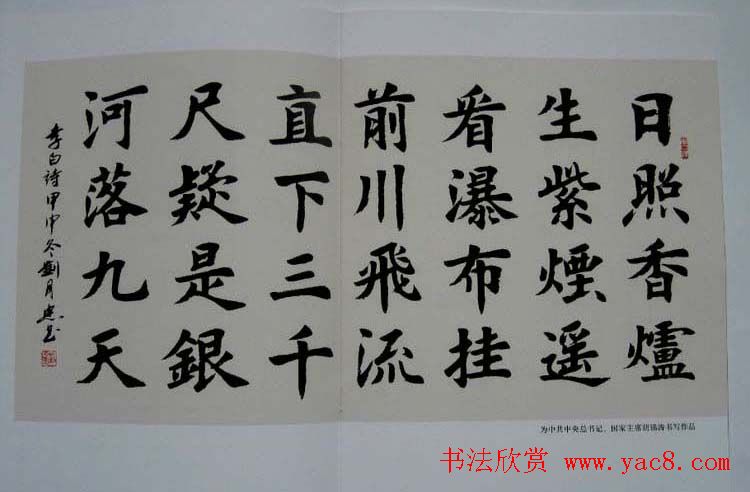 日照香爐
生紫煙遥
看瀑布挂
前川飛流
直下三千
尺疑是銀
河落九天
李白詩甲申冬劉月
为中共中央总书记、国家主席胡锦涛书写作品
书法欣赏 www.yac8.com